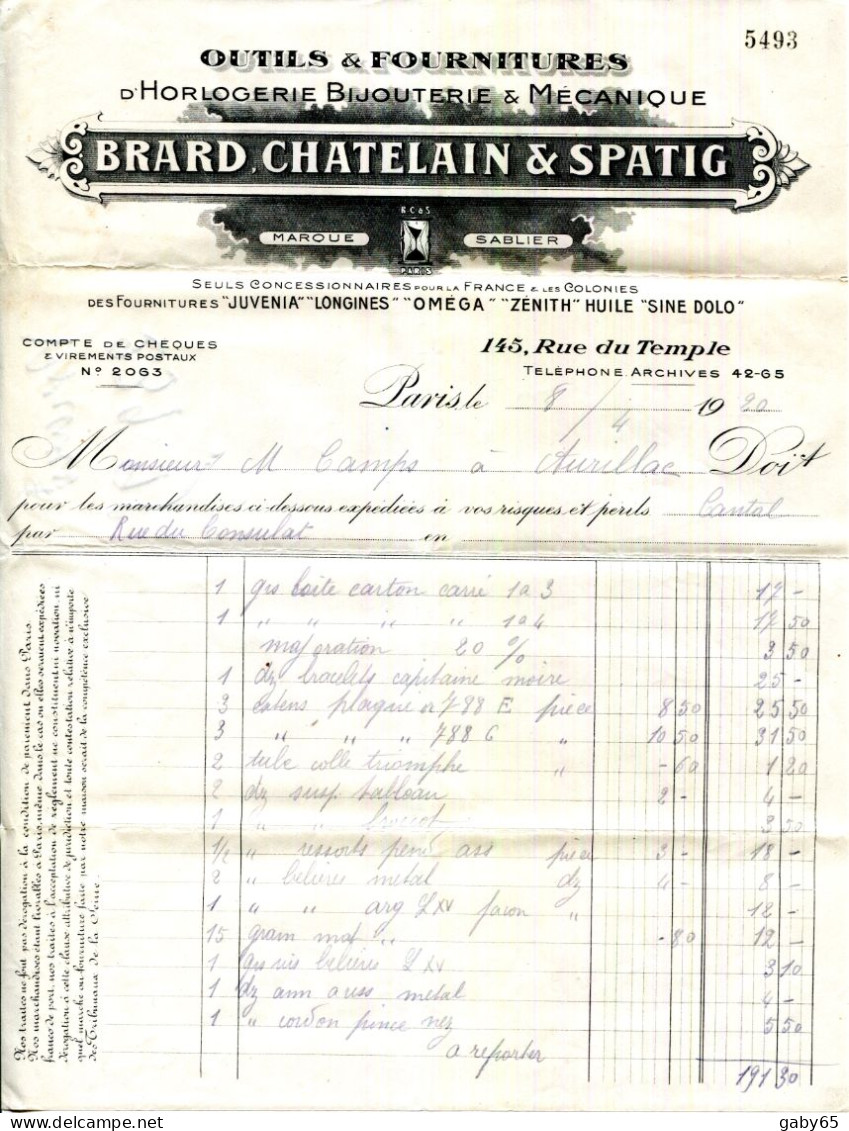 5493
OUTILS & FOURNITURES
D'HORLOGERIE BIJOUTERIE & MÉCANIQUE
BRARD, CHATELAIN & SPATIG
B C & S
MARQUE SABLIER
PARIS
SEULS CONCESSIONNAIRES POUR LA FRANCE & LES COLONIES
DES FOURNITURES "JUVENIA" "LONGINES" "OMÉGA" "ZÉNITH" HUILE "SINE DOLO"
COMPTE DE CHEQUES
& VIREMENTS POSTAUX
Nº 2063
145, Rue du Temple
TELÉPHONE: ARCHIVES 42-65
Paris, le 8/4 1920
Monsieur M Camps à Aurillac Doit
pour les marchandises ci-dessous expédiées à vos risques et périls Cantal
par Rue du Consulat en
1 grs boite carton carré 1 a 3 17 -
1 " " " " 1a4 17 50
majoration 20 % 3 50
1 dz bracelets capitaine moire 25 -
3 plaque or 788 E pièce 8 50 25 50
3 " " " " 788 G " 10 50 31 50
2 tube colle triomphe " - 60 1 20
2 dz susp tableau 2 - 4 -
1 " " 3 50
1/2 " ressorts pend ass pièce 3 - 18 -
2 " bélières metal dz 4 - 8 -
1 " " arg L XV facon " 12 -
15 gram mat " - 80 12 -
1 grs vis bélières L XV 3 10
1 dz ann auss metal 4 -
1 " cordon pince nez 5 50
a reporter
191 30
Nos traites ne font pas dérogation à la condition de paiement dans Paris.
Nos marchandises étant livrables à Paris, même dans le cas ou elles seraient expédiées
franco de port, nos traites à l'acceptation de règlement ne constituent ni novation, ni
dérogation à cette clause attributive de juridiction et toute contestation relative à n'importe
quel marché ou fourniture faite par notre maison serait de la compétence exclusive
des Tribunaux de la Seine.
gaby65